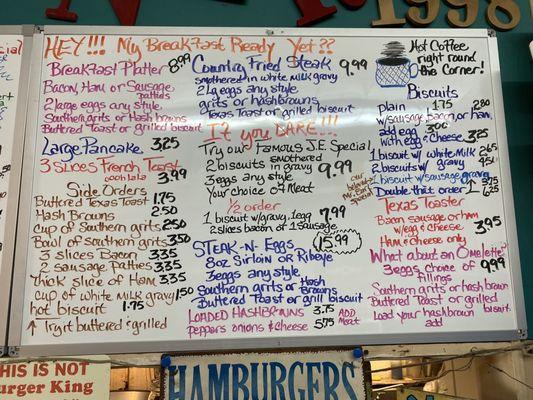 1998
HEY!!! My Breakfast Ready Yet??
Breakfast Platter 8.99
Bacon, Ham or Sausage patties
2 large eggs any style,
Southern grits or Hash browns
Buttered Toast or grilled biscuit
Large Pancake 3.25
3 SLICES French Toast
3.99
Side Orders
Buttered Texas Toast 1.75
Hash Browns 2.50
cup of Southern grits 2.50
Bowl of southern grits 3.50
3 slices Bacon 3.35
2 sausage Patties 3.35
thick slice of Ham 3.35
cup of white milk gravy 1.50
hot biscuit 1.75
↑ Try it buttered & grilled
Country Fried Steak 9.99
smothered in white milk gravy
2 lg eggs any style
grits or hashbrowns
Texas Toast or grilled biscuit
If you DARE...!!!
Try our Famous J.E. Special
smothered
2 biscuits in gravy 9.99
3 eggs any style
Your choice of Meat
1/2 order
1 biscuit w/gravy, 1 egg 7.99
2 slices bacon or 1 sausage
STEAK-N-EGGS 15.99
8oz Sirloin or Ribeye
3 eggs any style
Southern grits or Hash Browns
Buttered Toast or grill biscuit
LOADED HASHBROWNS 3.75 ADD
peppers onions & cheese 5.75 Meat
Hot Coffee
right round
the Corner!
Biscuits
plain 1.75
w/sausage, bacon, or ham 2.80
add egg 3.00
with egg & Cheese 3.25
1 biscuit w/ white Milk 2.65
2 biscuits w/ gravy 4.50
1 biscuit w/ sausage gravy 3.75
Double that order 6.25
Texas Toaster
Bacon sausage or ham
w/egg & cheese 3.95
Ham & cheese only
What about an Omelette?
3 eggs choice of 9.99
fillings
Southern grits or hash brown
Buttered Toast or grilled
Load your hashbrown biscuit
add
THIS IS NOT
Burger King
HAMBURGERS